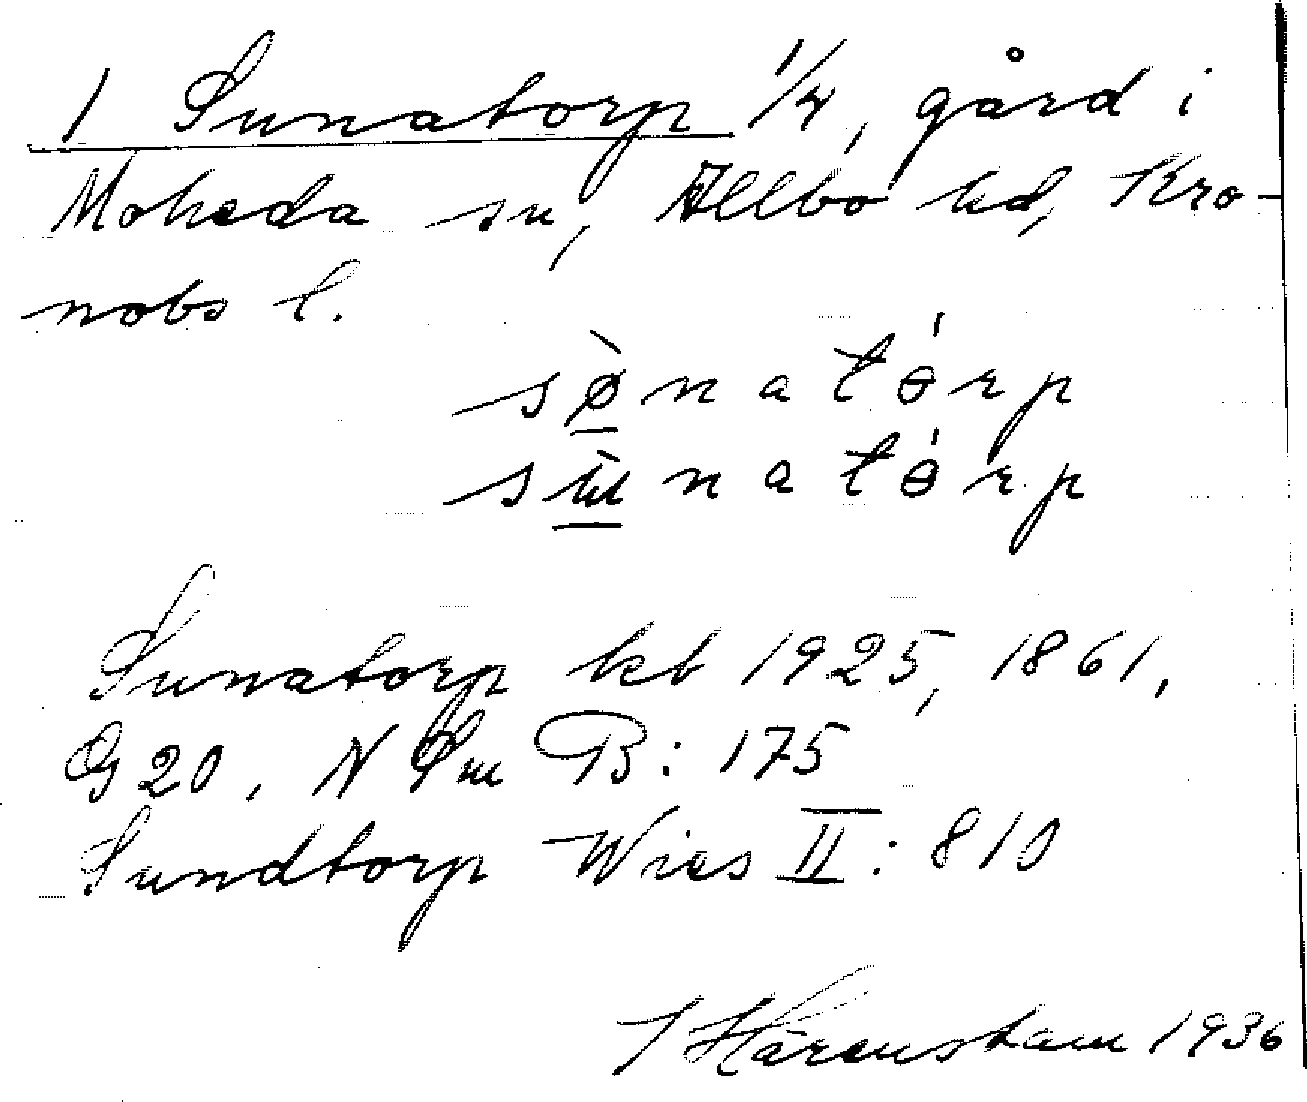 1 Sunatorp 1/4, gård i
Moheda sn, Allbo hd, Kro-
nobs l.
sø̀natɵ́rp
sɯ̀natɵ́rp
Sunatorp kb 1925, 1861,
G 20, N Sm B: 175
Sundtorp Wies II: 810
J Härenstam 1936